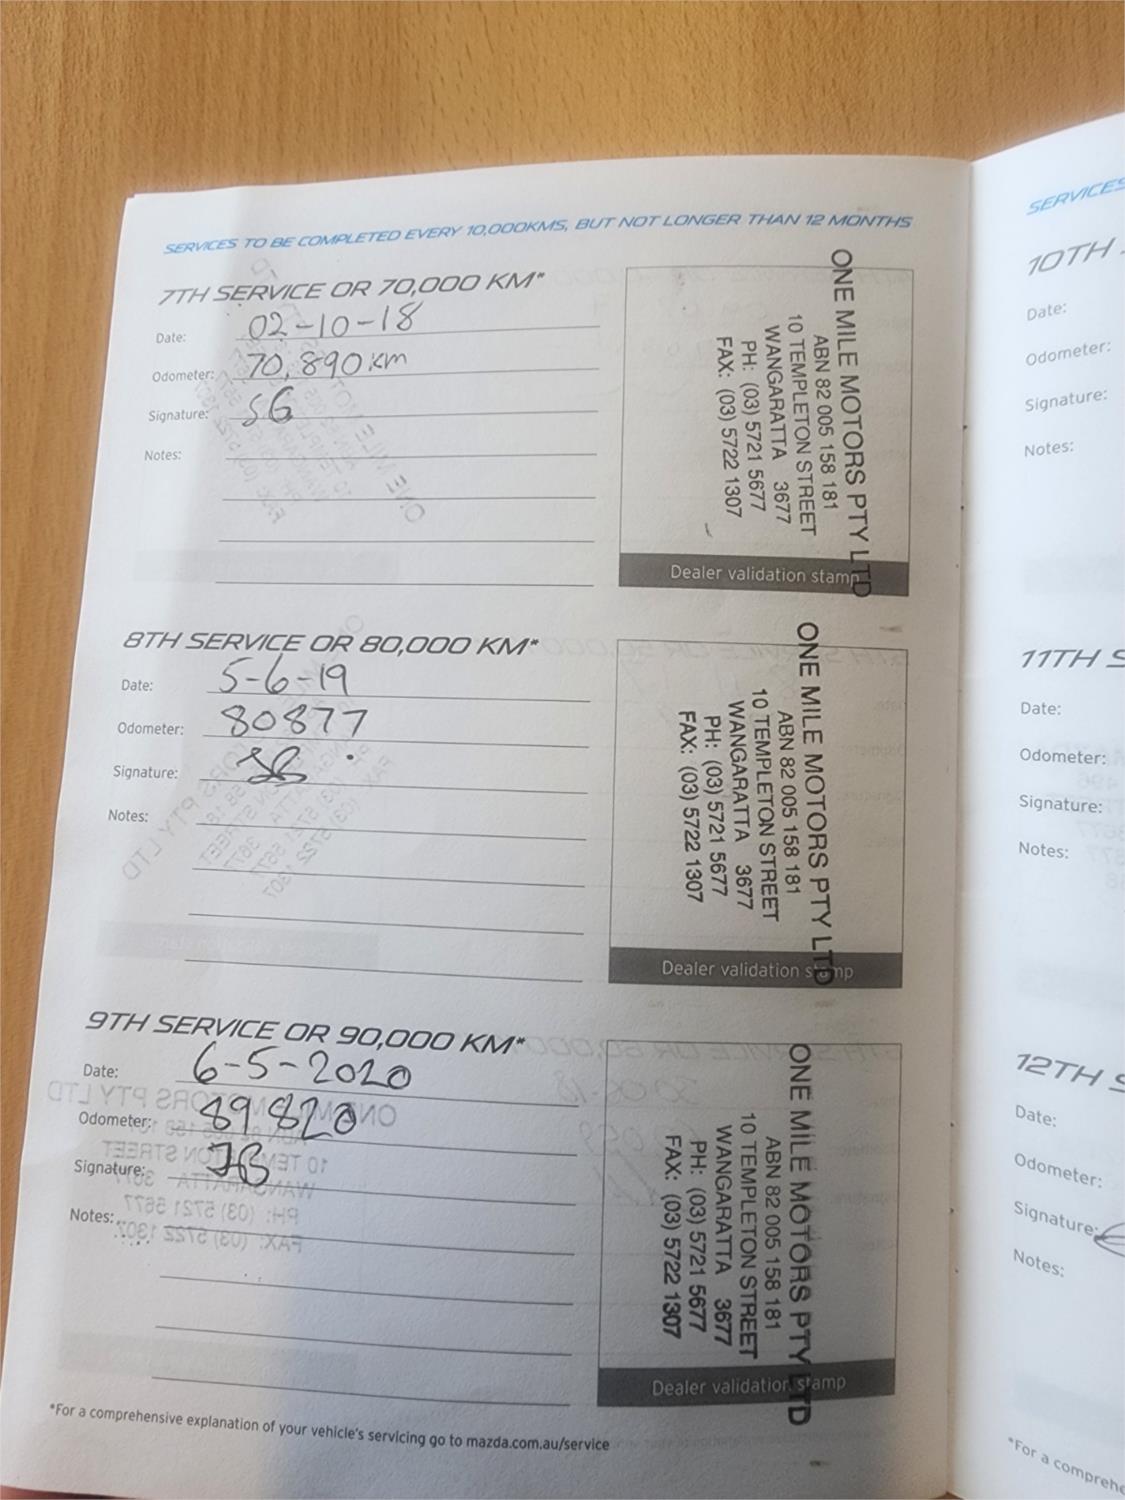 SERVICES TO BE COMPLETED EVERY 10,000KMS, BUT NOT LONGER THAN 12 MONTHS
7TH SERVICE OR 70,000 KM*
Date: 02-10-18
Odometer: 70,890km
Signature: SG
Notes:
ONE MILE MOTORS PTY LTD
ABN 82 005 158 181
10 TEMPLETON STREET
WANGARATTA 3677
PH: (03) 5721 5677
FAX: (03) 5722 1307
Dealer validation stamp
8TH SERVICE OR 80,000 KM*
Date: 5-6-19
Odometer: 80877
Signature:
Notes:
ONE MILE MOTORS PTY LTD
ABN 82 005 158 181
10 TEMPLETON STREET
WANGARATTA 3677
PH: (03) 5721 5677
FAX: (03) 5722 1307
Dealer validation stamp
9TH SERVICE OR 90,000 KM*
Date: 6-5-2020
Odometer: 89820
Signature:
Notes:
ONE MILE MOTORS PTY LTD
ABN 82 005 158 181
10 TEMPLETON STREET
WANGARATTA 3677
PH: (03) 5721 5677
FAX: (03) 5722 1307
Dealer validation stamp
*For a comprehensive explanation of your vehicle's servicing go to mazda.com.au/service
SERVICES
10TH
Date:
Odometer:
Signature:
Notes:
11TH S
Date:
Odometer:
Signature:
Notes:
12TH S
Date:
Odometer:
Signature:
Notes:
*For a comprehe